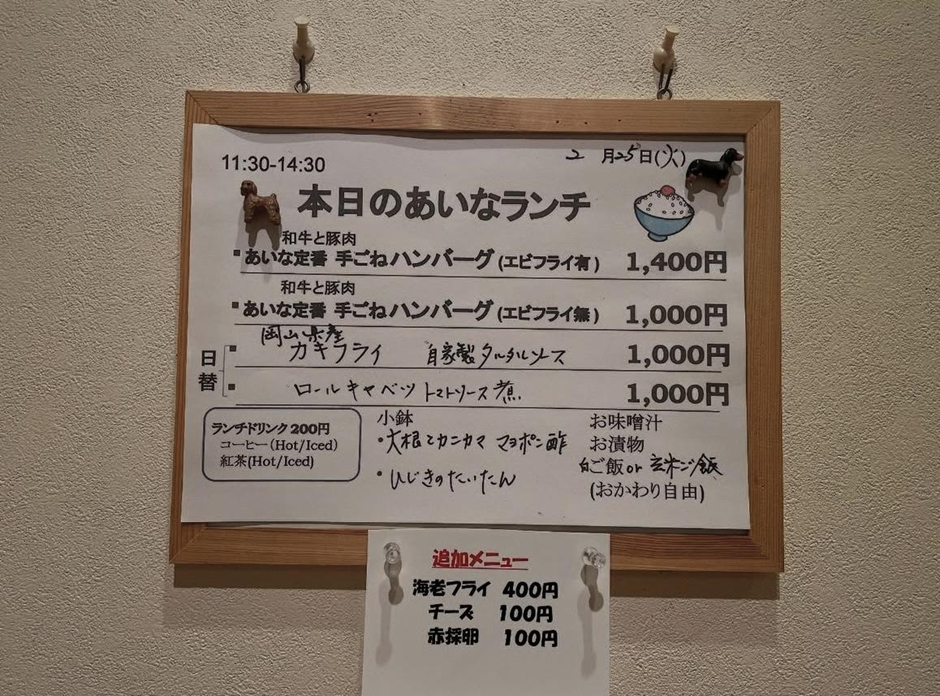 11:30-14:30
2月25日(火)
本日のあいなランチ
和牛と豚肉
■あいな定番 手ごねハンバーグ(エビフライ有) 1,400円
和牛と豚肉
■あいな定番 手ごねハンバーグ(エビフライ無) 1,000円
日替
岡山県産
■カキフライ 自家製タルタルソース 1,000円
■ロールキャベツ トマトソース煮 1,000円
ランチドリンク200円
コーヒー(Hot/Iced)
紅茶(Hot/Iced)
小鉢
・大根とカニカマ マヨポン酢
・ひじきのたいたん
お味噌汁
お漬物
白ご飯or玄米ご飯
(おかわり自由)
追加メニュー
海老フライ 400円
チーズ 100円
赤採卵 100円